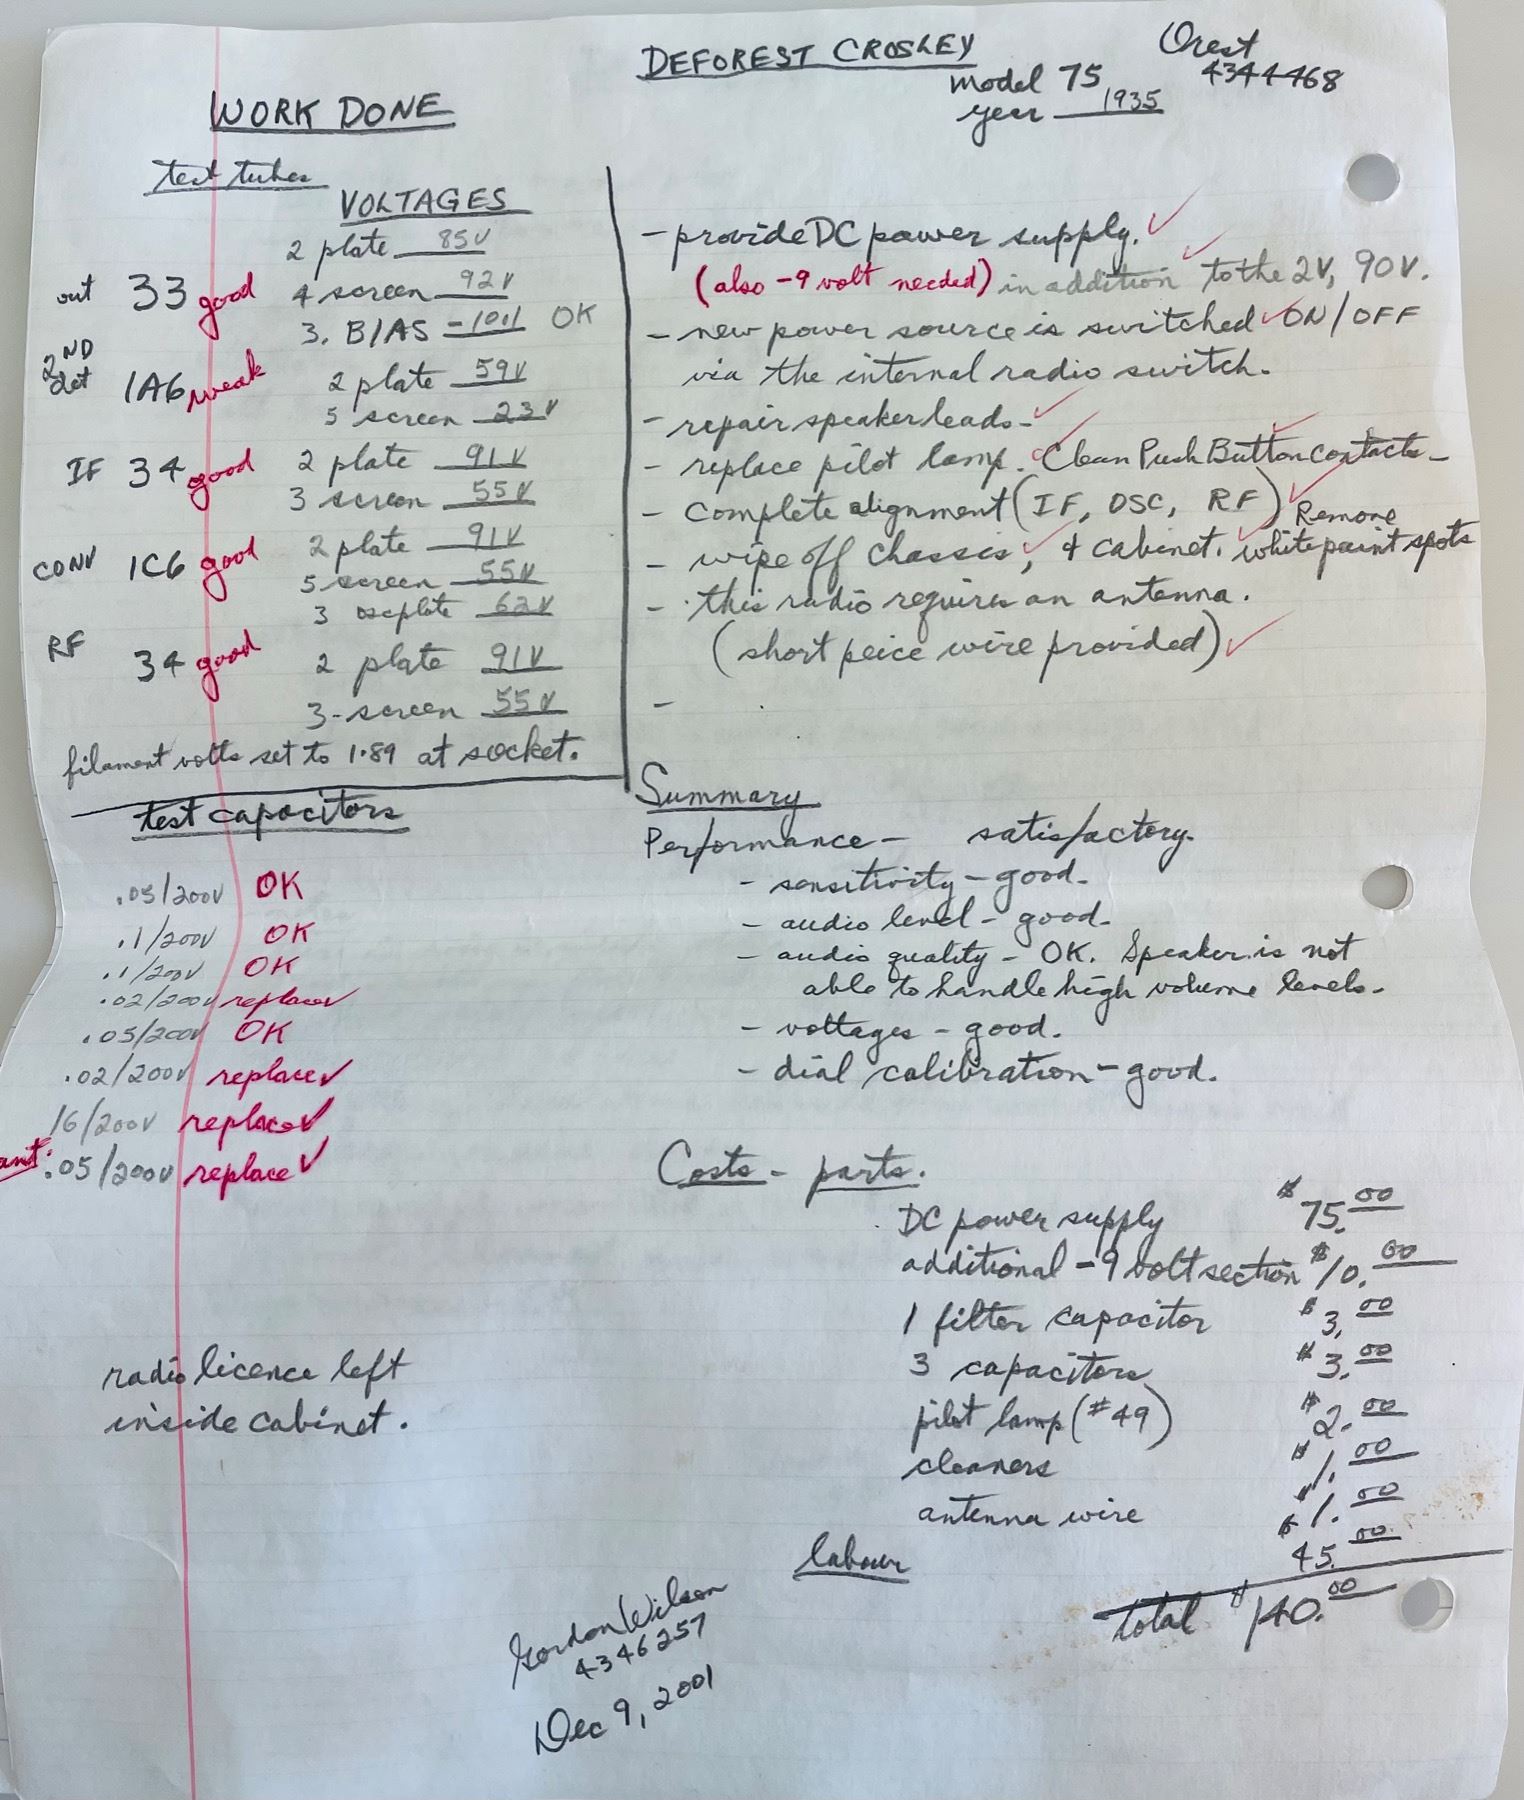 DEFOREST CROSLEY
Orest
model 75
4344468
year 1935
WORK DONE
test tubes
VOLTAGES
2 plate 85V
out 33 good 4 screen 92V
3. BIAS -10.1 OK
2ND det 1A6 weak 2 plate 59V
5 screen 23V
IF 34 good 2 plate 91V
3 screen 55V
CONV 1C6 good 2 plate 91V
5 screen 55V
3 oscplate 62V
RF 34 good 2 plate 91V
3-screen 55V
filament volts set to 1.89 at socket.
- provide DC power supply. ✓
(also -9 volt needed) in addition ✓ to the 2V, 90V.
- new power source is switched ✓ ON/OFF
via the internal radio switch.
- repair speaker leads- ✓
- replace pilot lamp. ✓ Clean Push Button contacts - ✓
- complete alignment (IF, OSC, RF) ✓
- wipe off chassis, ✓ & cabinet. ✓ Remove white paint spots ✓
- this radio requires an antenna.
(short peice wire provided) ✓
-
test capacitors
.05/200V OK
.1/200V OK
.1/200V OK
.02/200V replace ✓
.05/200V OK
.02/200V replace ✓
16/200V replace ✓
ant. .05/200V replace ✓
radio licence left
inside cabinet.
Summary
Performance - satisfactory.
- sensitivity - good.
- audio level - good.
- audio quality - OK. Speaker is not
able to handle high volume levels.
- voltages - good.
- dial calibration - good.
Costs - parts.
DC power supply $75.00
additional -9 volt section $10.00
1 filter capacitor $3.00
3 capacitors $3.00
pilot lamp (#49) $2.00
cleaners $1.00
antenna wire $1.00
labour $45.00
total $140.00
Gordon Wilson
4346257
Dec 9, 2001